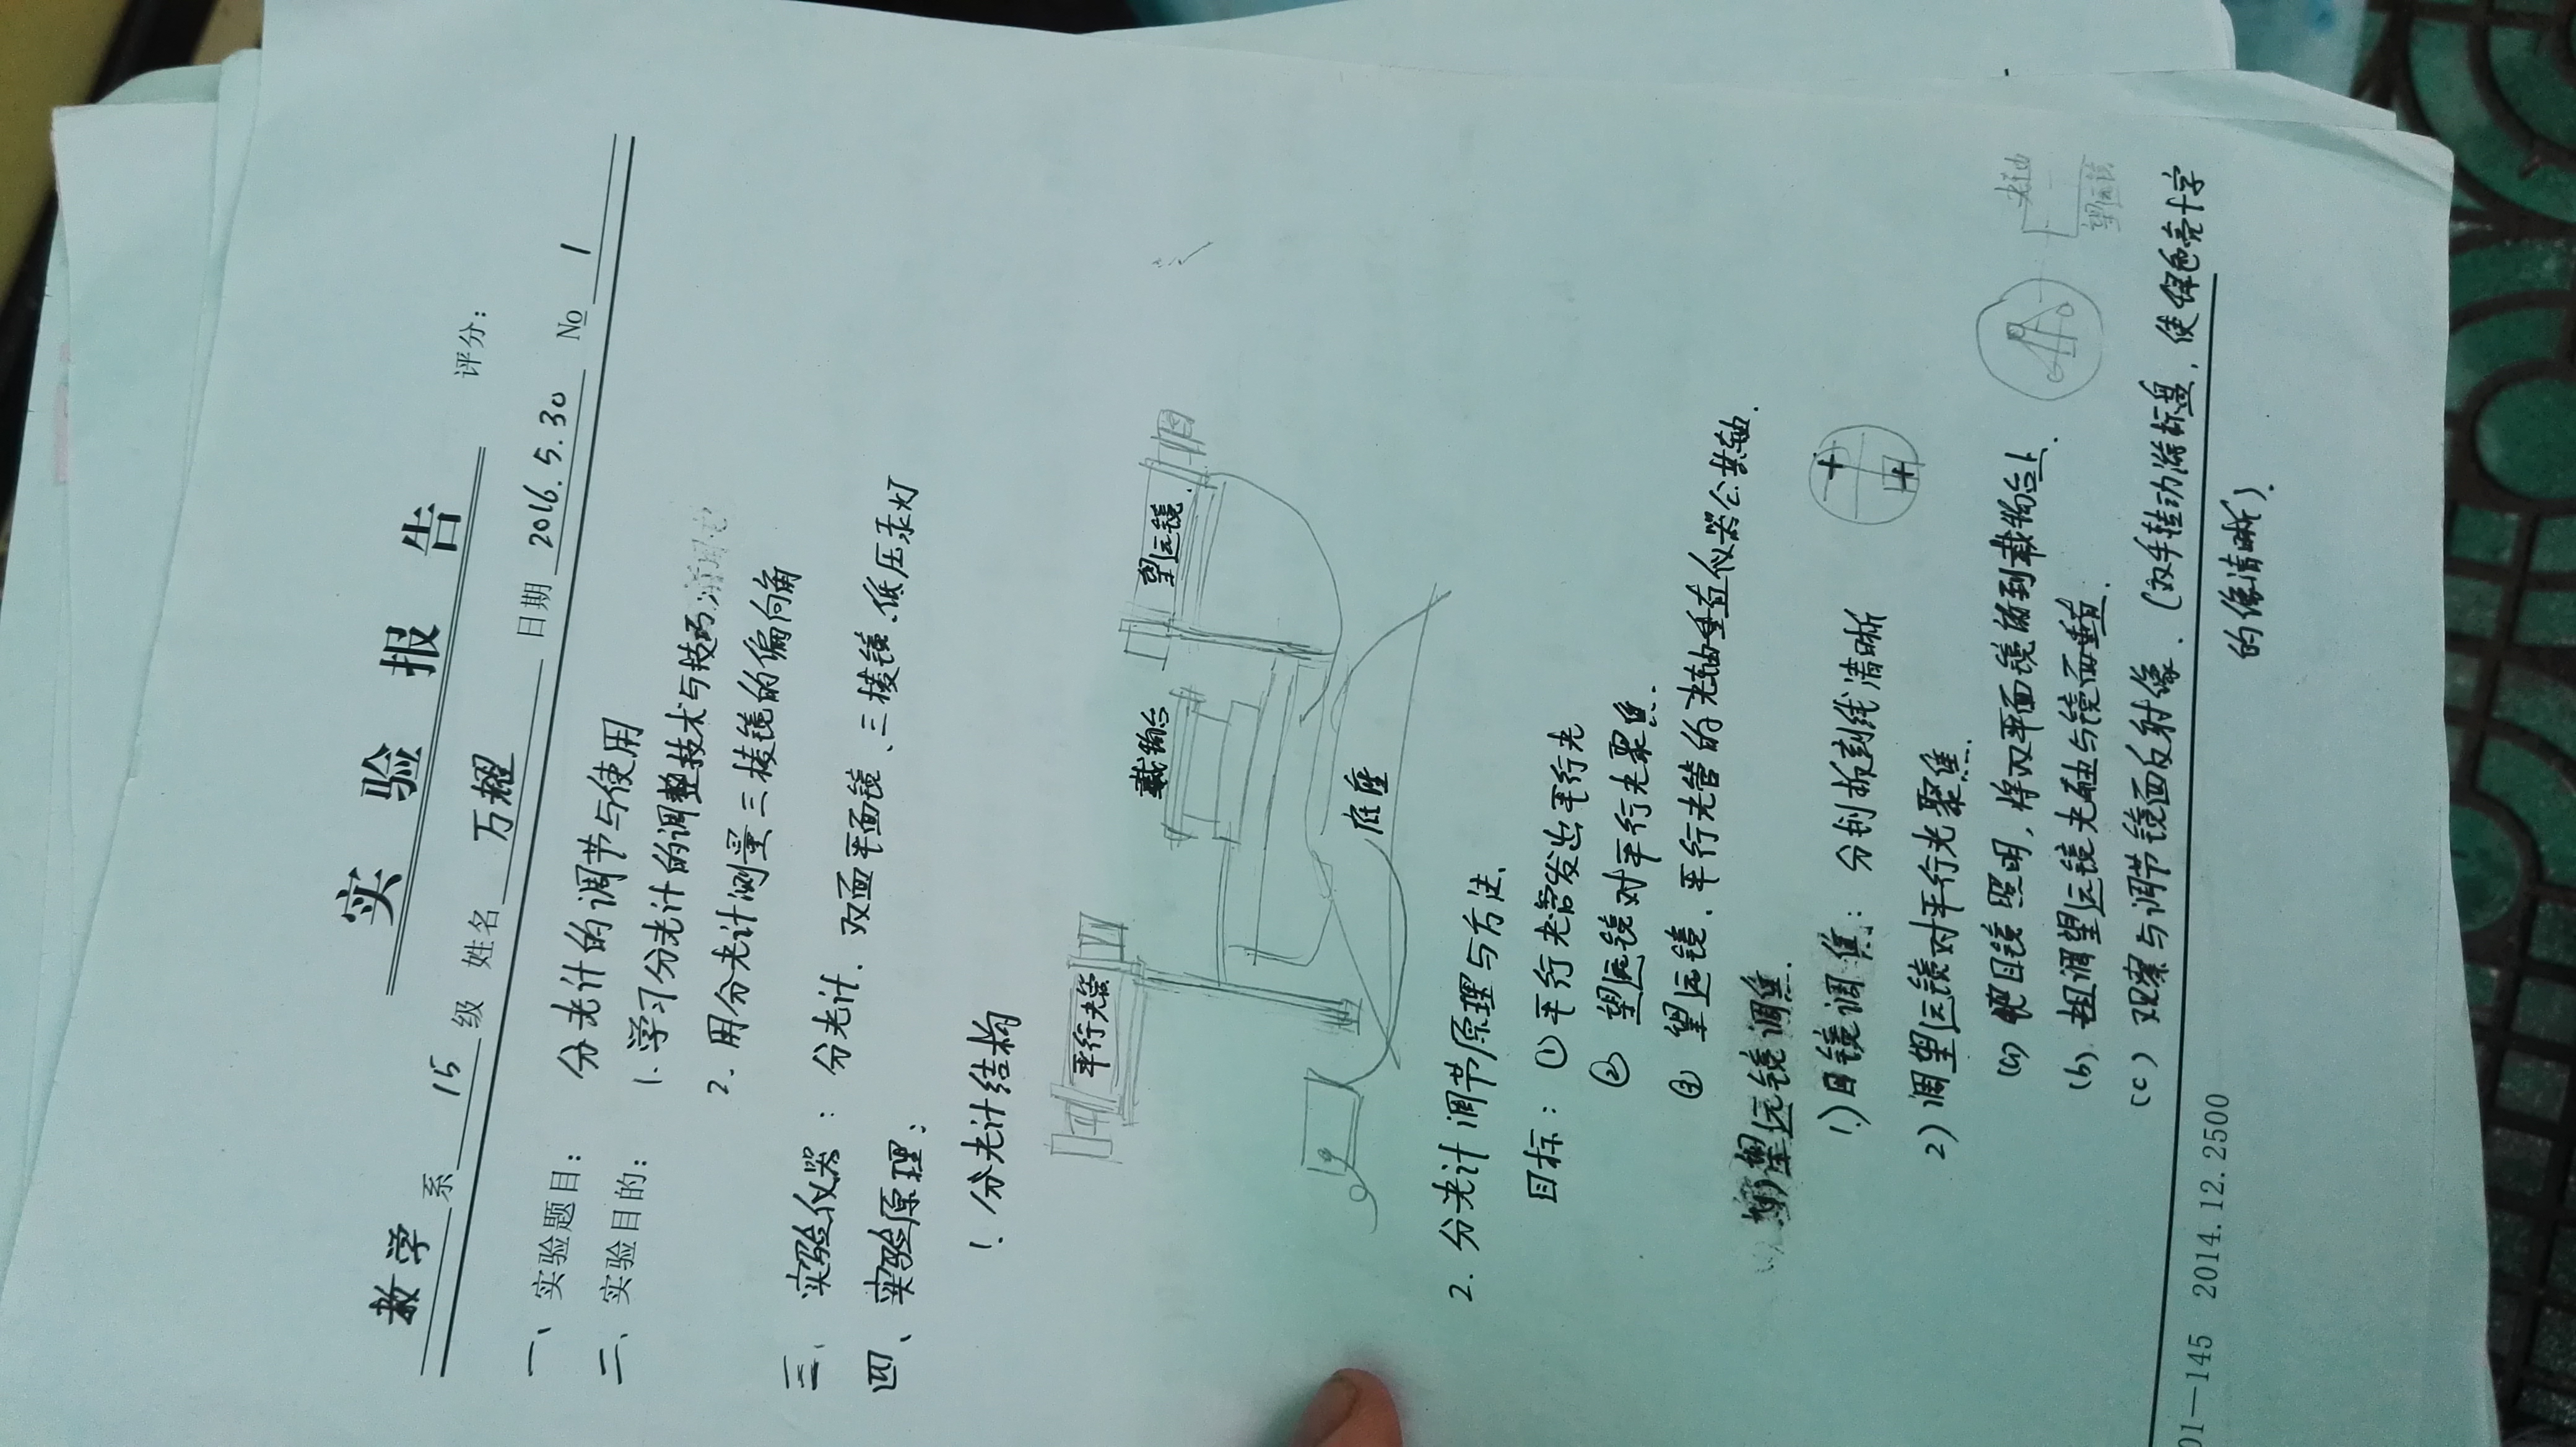 实验报告
评分:
数学系 15 级 姓名 万耀 日期 2016.5.30 No 1
一、实验题目: 分光计的调节与使用
二、实验目的: 1.学习分光计的调整技术与技巧
2.用分光计测量三棱镜的偏向角
三、实验仪器: 分光计.双面平面镜、三棱镜.低压汞灯
四、实验原理:
1.分光计结构
平行光管
载物台
望远镜
底座
2.分光计调节原理与方法.
目标:①平行光管发出平行光
② 望远镜对平行光聚焦.
③ 望远镜.平行光管的光轴垂直仪器公共轴.
望远镜调焦.
1.)目镜调焦:分划板刻线清晰
2)调望远镜对平行光聚焦.
(a) 目镜照明,将双平面镜放到载物台上.
(b).粗调望远镜光轴与镜面垂直.
(c)观察与调节镜面反射像.(双手转动游标盘,使绿色亮十字
的像清晰).
光轴
望远镜
01—145 2014.12.2500